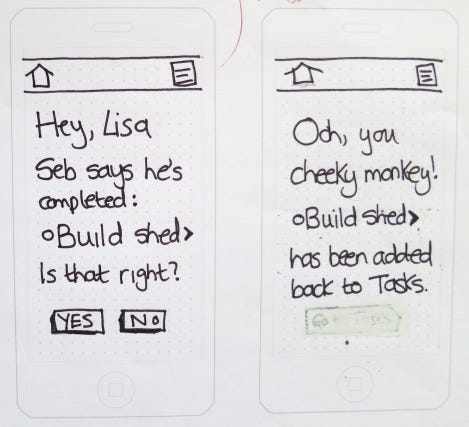 Hey, Lisa
Seb says he's
completed:
Build shed>
Is that right?
YES NO
Ooh, you
cheeky monkey!
Build shed>
has been added
back to Tasks.
Go to Tasks